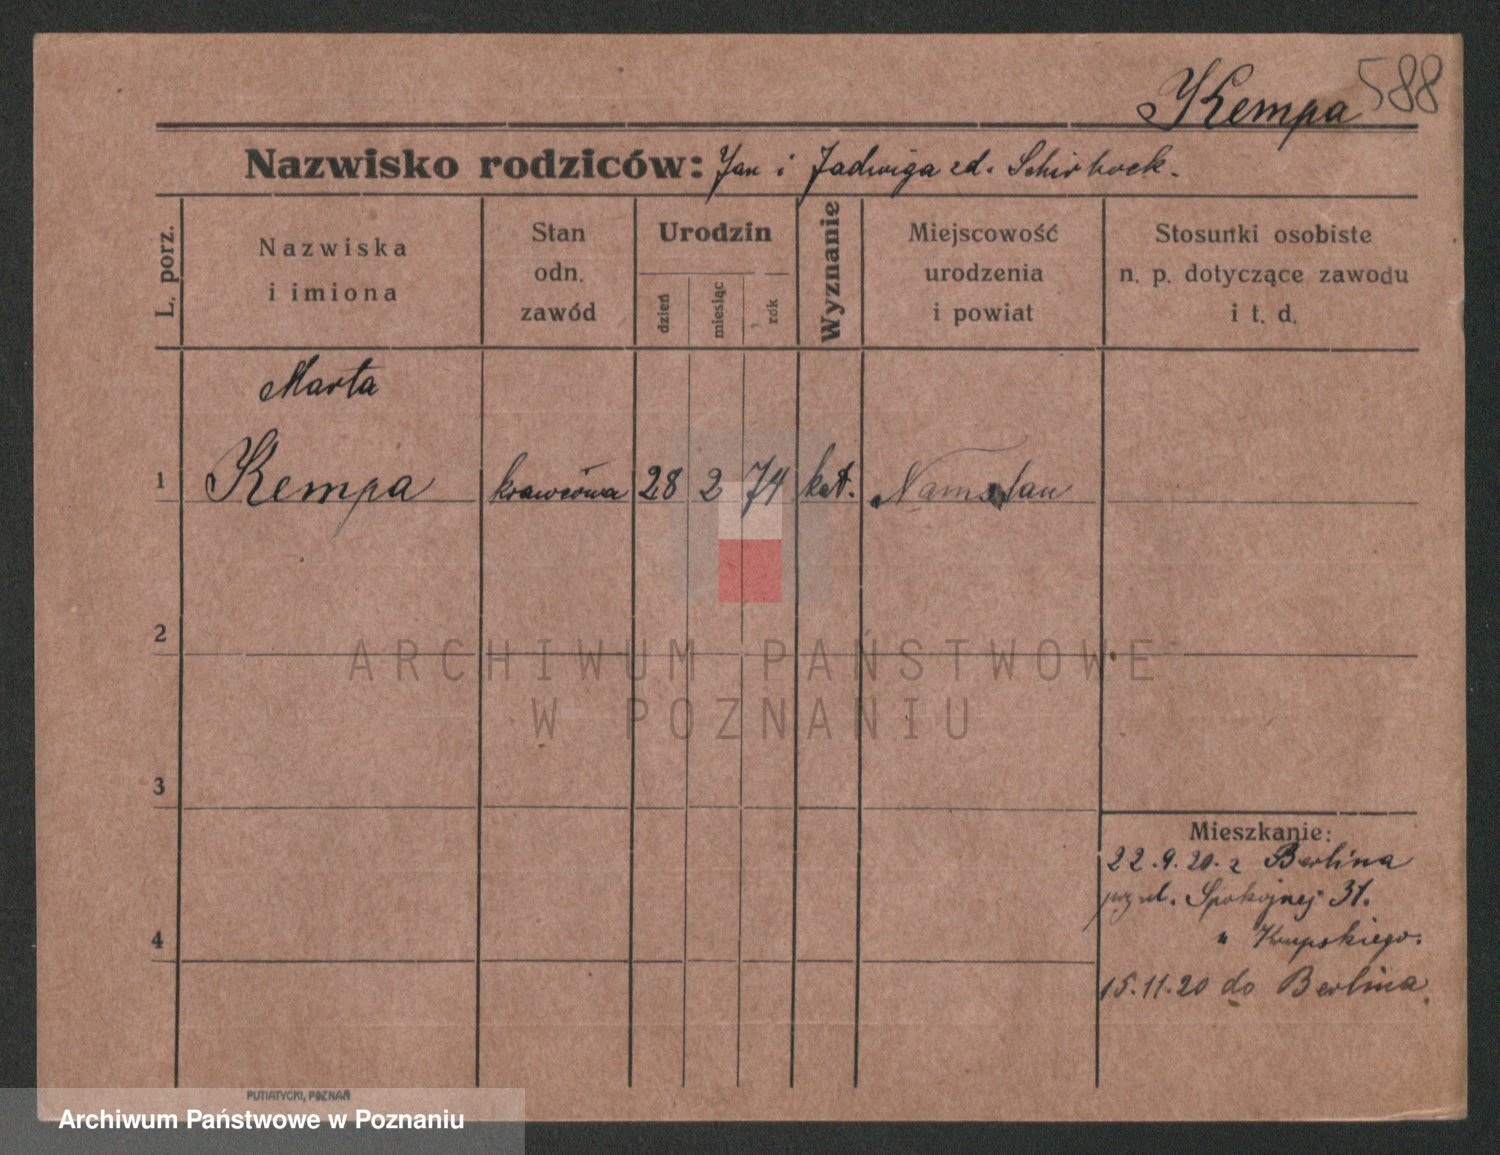 Kempa 588
Nazwisko rodziców: Jan i Jadwiga zd.
L. porz.
Nazwiska
i imiona
Stan
odn.
zawód
Urodzin
dzień
miesiąc
rok
Wyznanie
Miejscowość
urodzenia
i powiat
Stosunki osobiste
n. p. dotyczące zawodu
i t. d.
Marta
1 Kempa krawcowa 28 2 74 kat. Namslau
2
ARCHIWUM PAŃSTWOWE
W POZNANIU
3
Mieszkanie:
22.9.20. z Berlina
przy ul. Spokojnej 31.
u Krupskiego.
4
15.11.20 do Berlina.
PUTIATYCKI, POZNAŃ
Archiwum Państwowe w Poznaniu